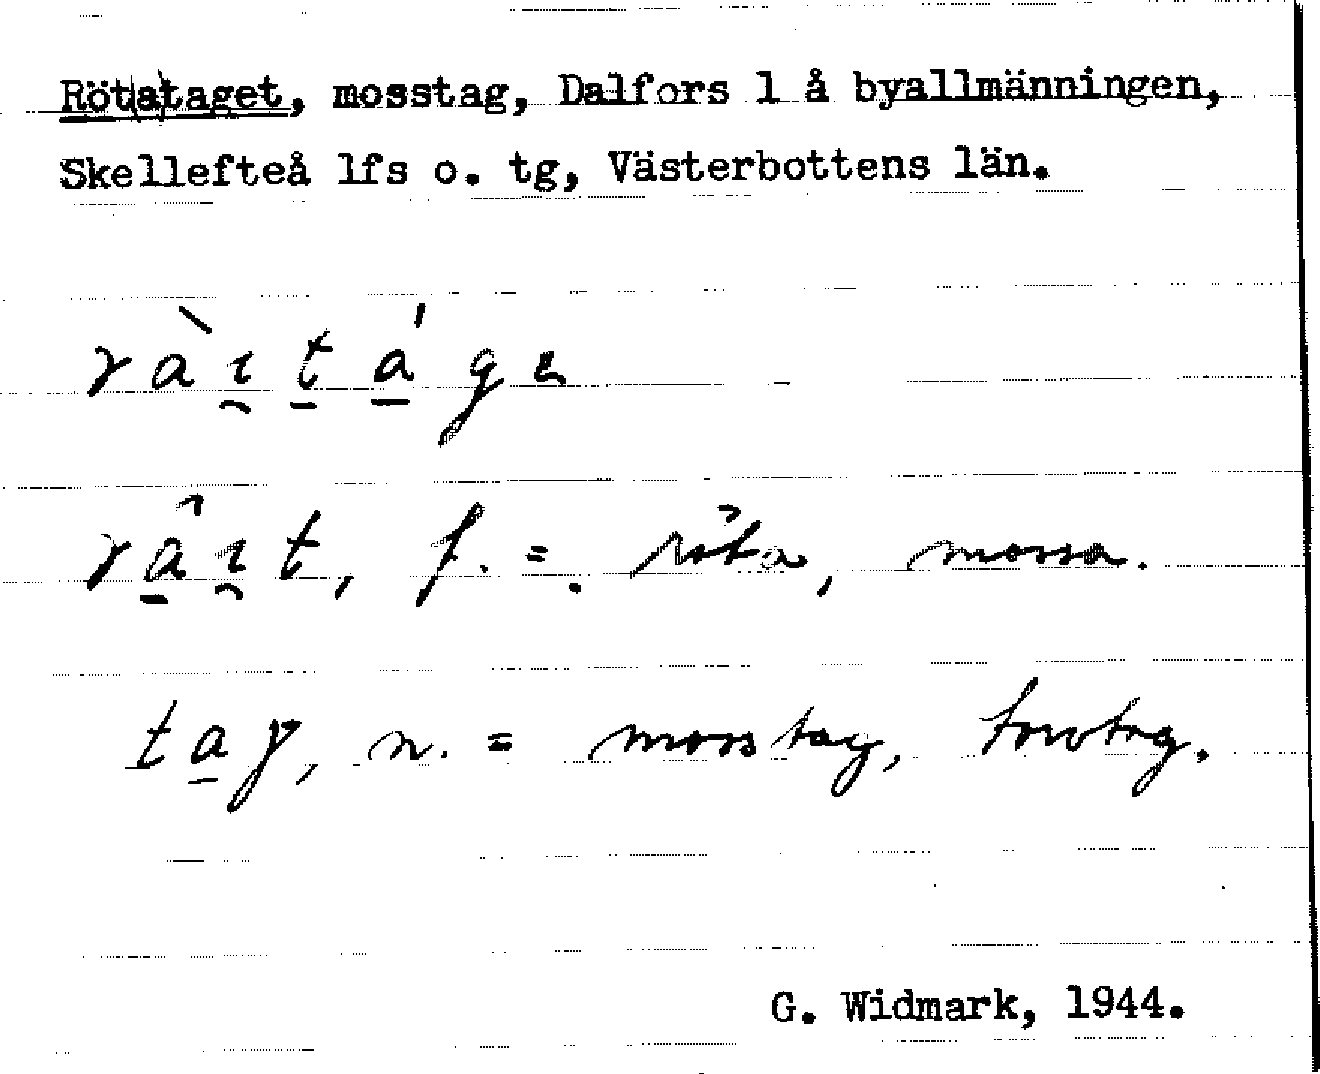 Rötataget, mosstag, Dalfors 1 å byallmänningen,
Skellefteå lfs o. tg, Västerbottens län.
ràı̯t̲a̲̍ge
râ̲ı̯t, f. = röta, mossa.
ta̲γ, n. = mosstag, torvtag.
G. Widmark, 1944.